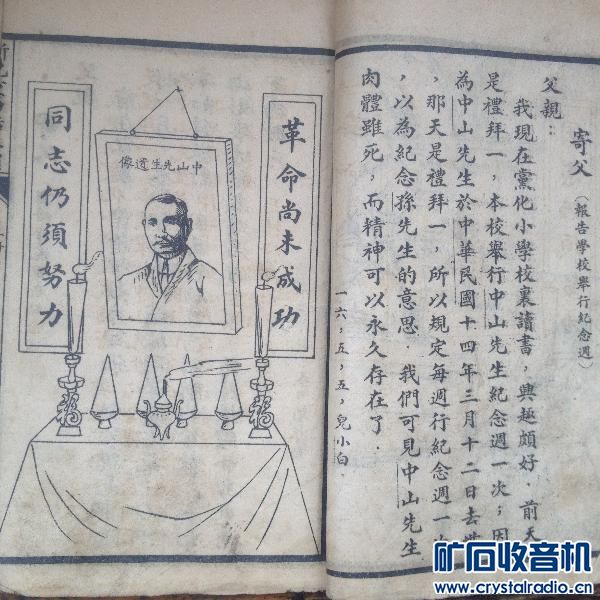 寄父（報告學校舉行紀念週）
父親：
我現在黨化小學校裏讀書，興趣頗好．前天
是禮拜一，本校舉行中山先生紀念週一次；因
為中山先生於中華民國十四年三月十二日去世
，那天是禮拜一，所以規定每週行紀念週一次
，以為紀念孫先生的意思．我們可見中山先生
肉體雖死，而精神可以永久存在了．
一六，五，五，兒小白．
革命尚未成功
中山先生遺像
同志仍須努力
矿石收音机
www.crystalradio.cn